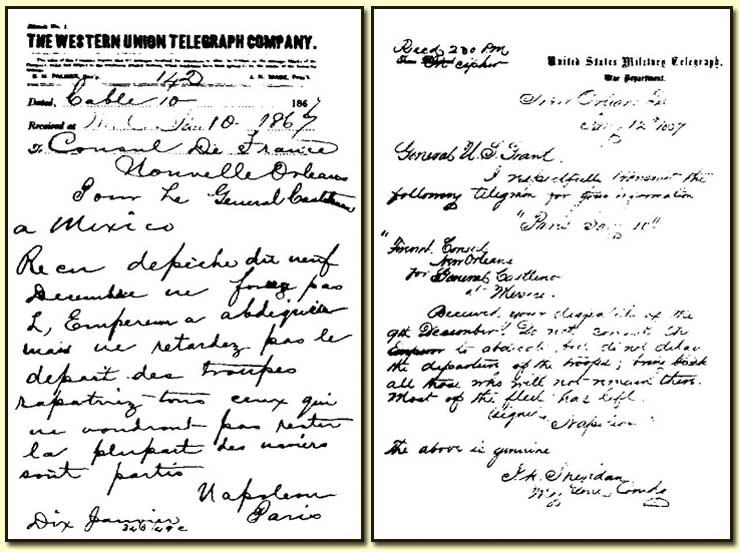 THE WESTERN UNION TELEGRAPH COMPANY.
142
Dated, Cable 10 1867
Received at Jan 10 1867
To Consul De France
Nouvelle Orleans
Pour Le General Castelnau
a Mexico
Recu depeche du neuf
Decembre ne forcez pas
L, Empereur a abdiquer
mais ne retardez pas le
depart des troupes
rapatriez tous ceux qui
ne voudront pas rester
la plupart des navires
sont partis
Napoleon
Paris
Dix Janvier
Recd 230 PM
In cipher
United States Military Telegraph.
War Department.
New Orleans La
Jany 12th 1867
General U. S. Grant.
I respectfully transmit the
following telegram for your information
"Paris Jany 10th
"French Consul
New Orleans
for General Castleno
at Mexico.
Received your dispatch of the
9th December. Do not compel the
Emperor to abdicate, but do not delay
the departure of the troops; bring back
all those who will not remain there.
Most of the fleet has left.
Napoleon
The above is genuine
P. H. Sheridan
Maj Genl Comdg